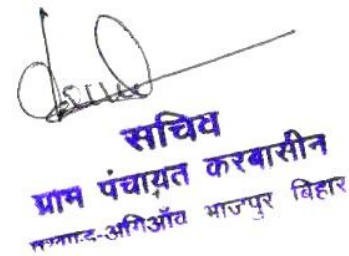 सचिव
ग्राम पंचायत करबासीन
अगिआँव भोजपुर बिहार